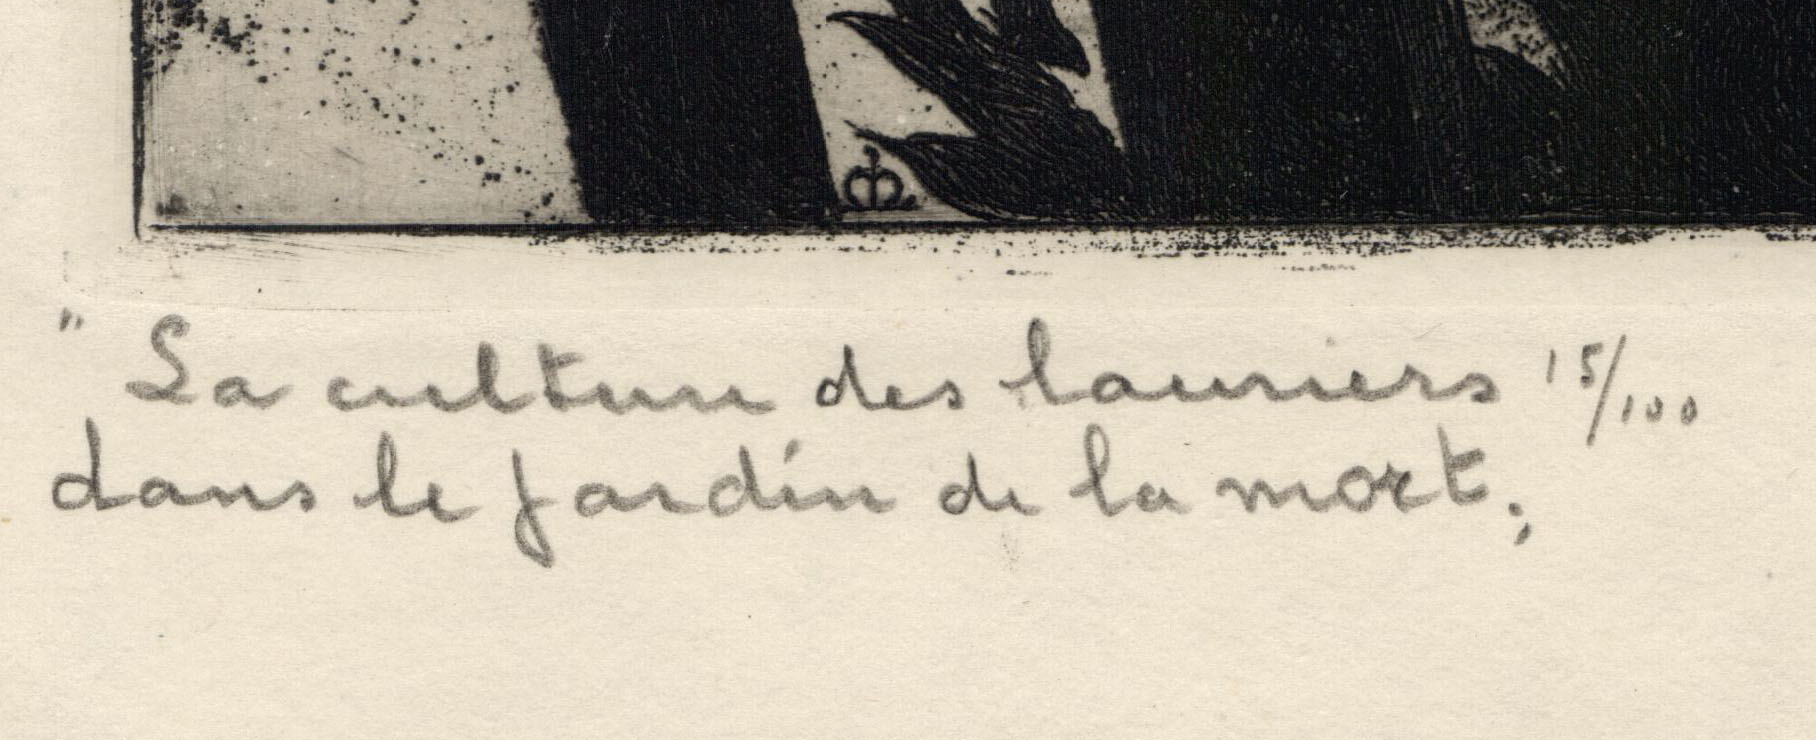 " La culture des lauriers 15/100
dans le jardin de la mort.,